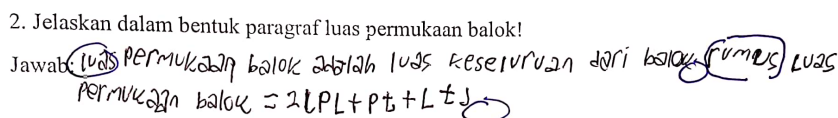 2. Jelaskan dalam bentuk paragraf luas permukaan balok!
Jawab: luas permukaan balok adalah luas keseluruan dari balok, rumus luas
permukaan balok = 2(PL+Pt+Lt)